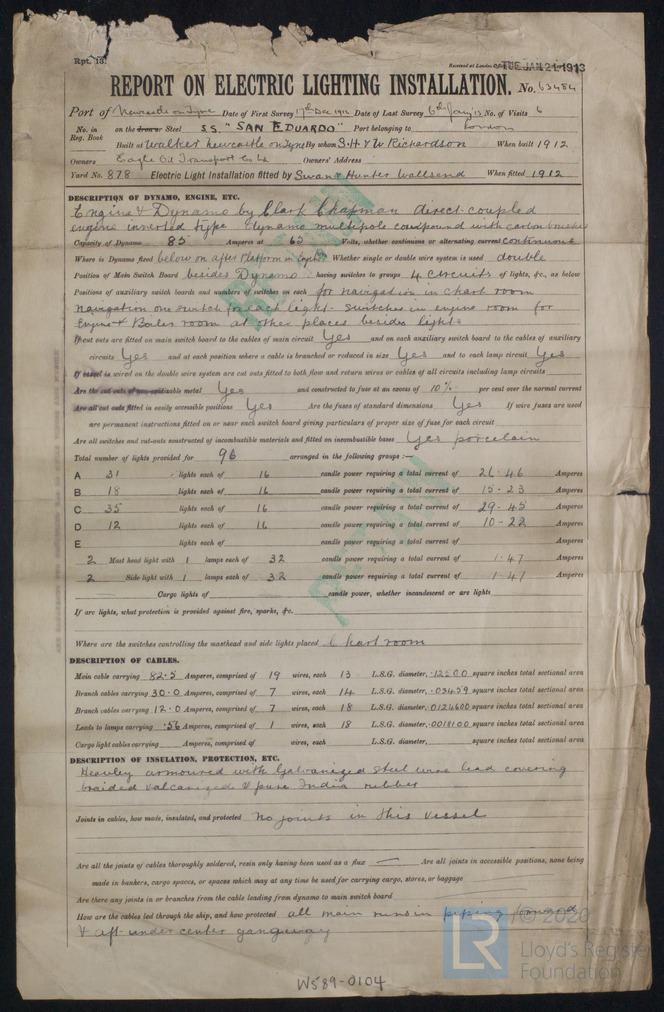 Rpt. 13.
Received at London Office TUE. JAN 21 1913
REPORT ON ELECTRIC LIGHTING INSTALLATION. No. 63484
Port of Newcastle on Tyne Date of First Survey 17th Dec 1912 Date of Last Survey 6th Jany 13 No. of Visits 6
No. in Reg. Book on the Iron or Steel S.S. "SAN EDUARDO" Port belonging to London
Built at Walker Newcastle on Tyne By whom S. H & W Richardson When built 1912
Owners Eagle Oil Transport Co Ld Owners' Address
Yard No. 878 Electric Light Installation fitted by Swan & Hunter Wallsend When fitted 1912
DESCRIPTION OF DYNAMO, ENGINE, ETC.
Engine & Dynamo by Clark Chapman direct coupled
engine inverted type dynamo multipole compound with carbon brushes
Capacity of Dynamo 85 Amperes at 65 Volts, whether continuous or alternating current continuous
Where is Dynamo fixed below on after Platform in Whether single or double wire system is used double
Position of Main Switch Board besides Dynamo having switches to groups 4 circuits of lights, &c., as below
Positions of auxiliary switch boards and numbers of switches on each for navigation in chart room
navigation one switch for each light. switches in engine room for
Engine & Boiler room at other places besides lights
If cut outs are fitted on main switch board to the cables of main circuit Yes and on each auxiliary switch board to the cables of auxiliary
circuits Yes and at each position where a cable is branched or reduced in size Yes and to each lamp circuit Yes
If vessel is wired on the double wire system are cut outs fitted to both flow and return wires or cables of all circuits including lamp circuits
Are the cut outs of non-oxidizable metal Yes and constructed to fuse at an excess of 10% per cent over the normal current
Are all cut outs fitted in easily accessible positions Yes Are the fuses of standard dimensions Yes If wire fuses are used
are permanent instructions fitted on or near each switch board giving particulars of proper size of fuse for each circuit
Are all switches and cut-outs constructed of incombustible materials and fitted on incombustible bases Yes porcelain
Total number of lights provided for 96 arranged in the following groups :—
A 31 lights each of 16 candle power requiring a total current of 26.46 Amperes
B 18 lights each of 16 candle power requiring a total current of 15.23 Amperes
C 35 lights each of 16 candle power requiring a total current of 29.45 Amperes
D 12 lights each of 16 candle power requiring a total current of 10.22 Amperes
E lights each of candle power requiring a total current of Amperes
2 Mast head light with 1 lamps each of 32 candle power requiring a total current of 1.47 Amperes
2 Side light with 1 lamps each of 32 candle power requiring a total current of 1.47 Amperes
Cargo lights of candle power, whether incandescent or arc lights
If arc lights, what protection is provided against fire, sparks, &c.
Where are the switches controlling the masthead and side lights placed Chart room
DESCRIPTION OF CABLES.
Main cable carrying 82.5 Amperes, comprised of 19 wires, each 13 L.S.G. diameter, square inches total sectional area
Branch cables carrying 30.0 Amperes, comprised of 7 wires, each 14 L.S.G. diameter, .03459 square inches total sectional area
Branch cables carrying 12.0 Amperes, comprised of 7 wires, each 18 L.S.G. diameter, .0124600 square inches total sectional area
Leads to lamps carrying .56 Amperes, comprised of 1 wires, each 18 L.S.G. diameter, .0018100 square inches total sectional area
Cargo light cables carrying Amperes, comprised of wires, each L.S.G. diameter, square inches total sectional area
DESCRIPTION OF INSULATION, PROTECTION, ETC.
Heavley armoured with Galvanized steel wire lead covering
braided valcanized & pure India rubber
Joints in cables, how made, insulated, and protected No joints in this vessel
Are all the joints of cables thoroughly soldered, resin only having been used as a flux — Are all joints in accessible positions, none being
made in bunkers, cargo spaces, or spaces which may at any time be used for carrying cargo, stores, or baggage
Are there any joints in or branches from the cable leading from dynamo to main switch board
How are the cables led through the ship, and how protected all main runs in piping forward
& aft under center gangway
© 2020
LR
Lloyd's Register
Foundation
W589-0104